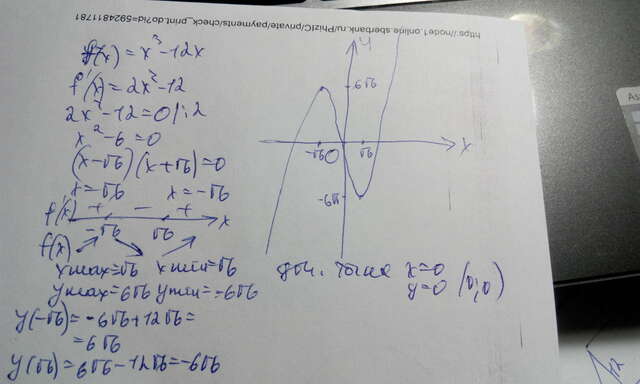 https://node1.online.sberbank.ru/PhizIC/private/payments/check_print.do?id=5924811781
f(x) = x³-12x
f'(x) = 2x²-12
2x²-12=0 |:2
x²-6=0
(x-√6)(x+√6)=0
x=√6 x=-√6
f'(x) + - + x
-√6 √6
f(x)
xmax=√6 xmin=√6
ymax=6√6 ymin=-6√6
y(-√6)= -6√6+12√6=
=6√6
y(√6)=6√6-12√6=-6√6
y
6√6
-√6 0 √6 x
-6√6
доп. точка x=0
y=0 (0;0)